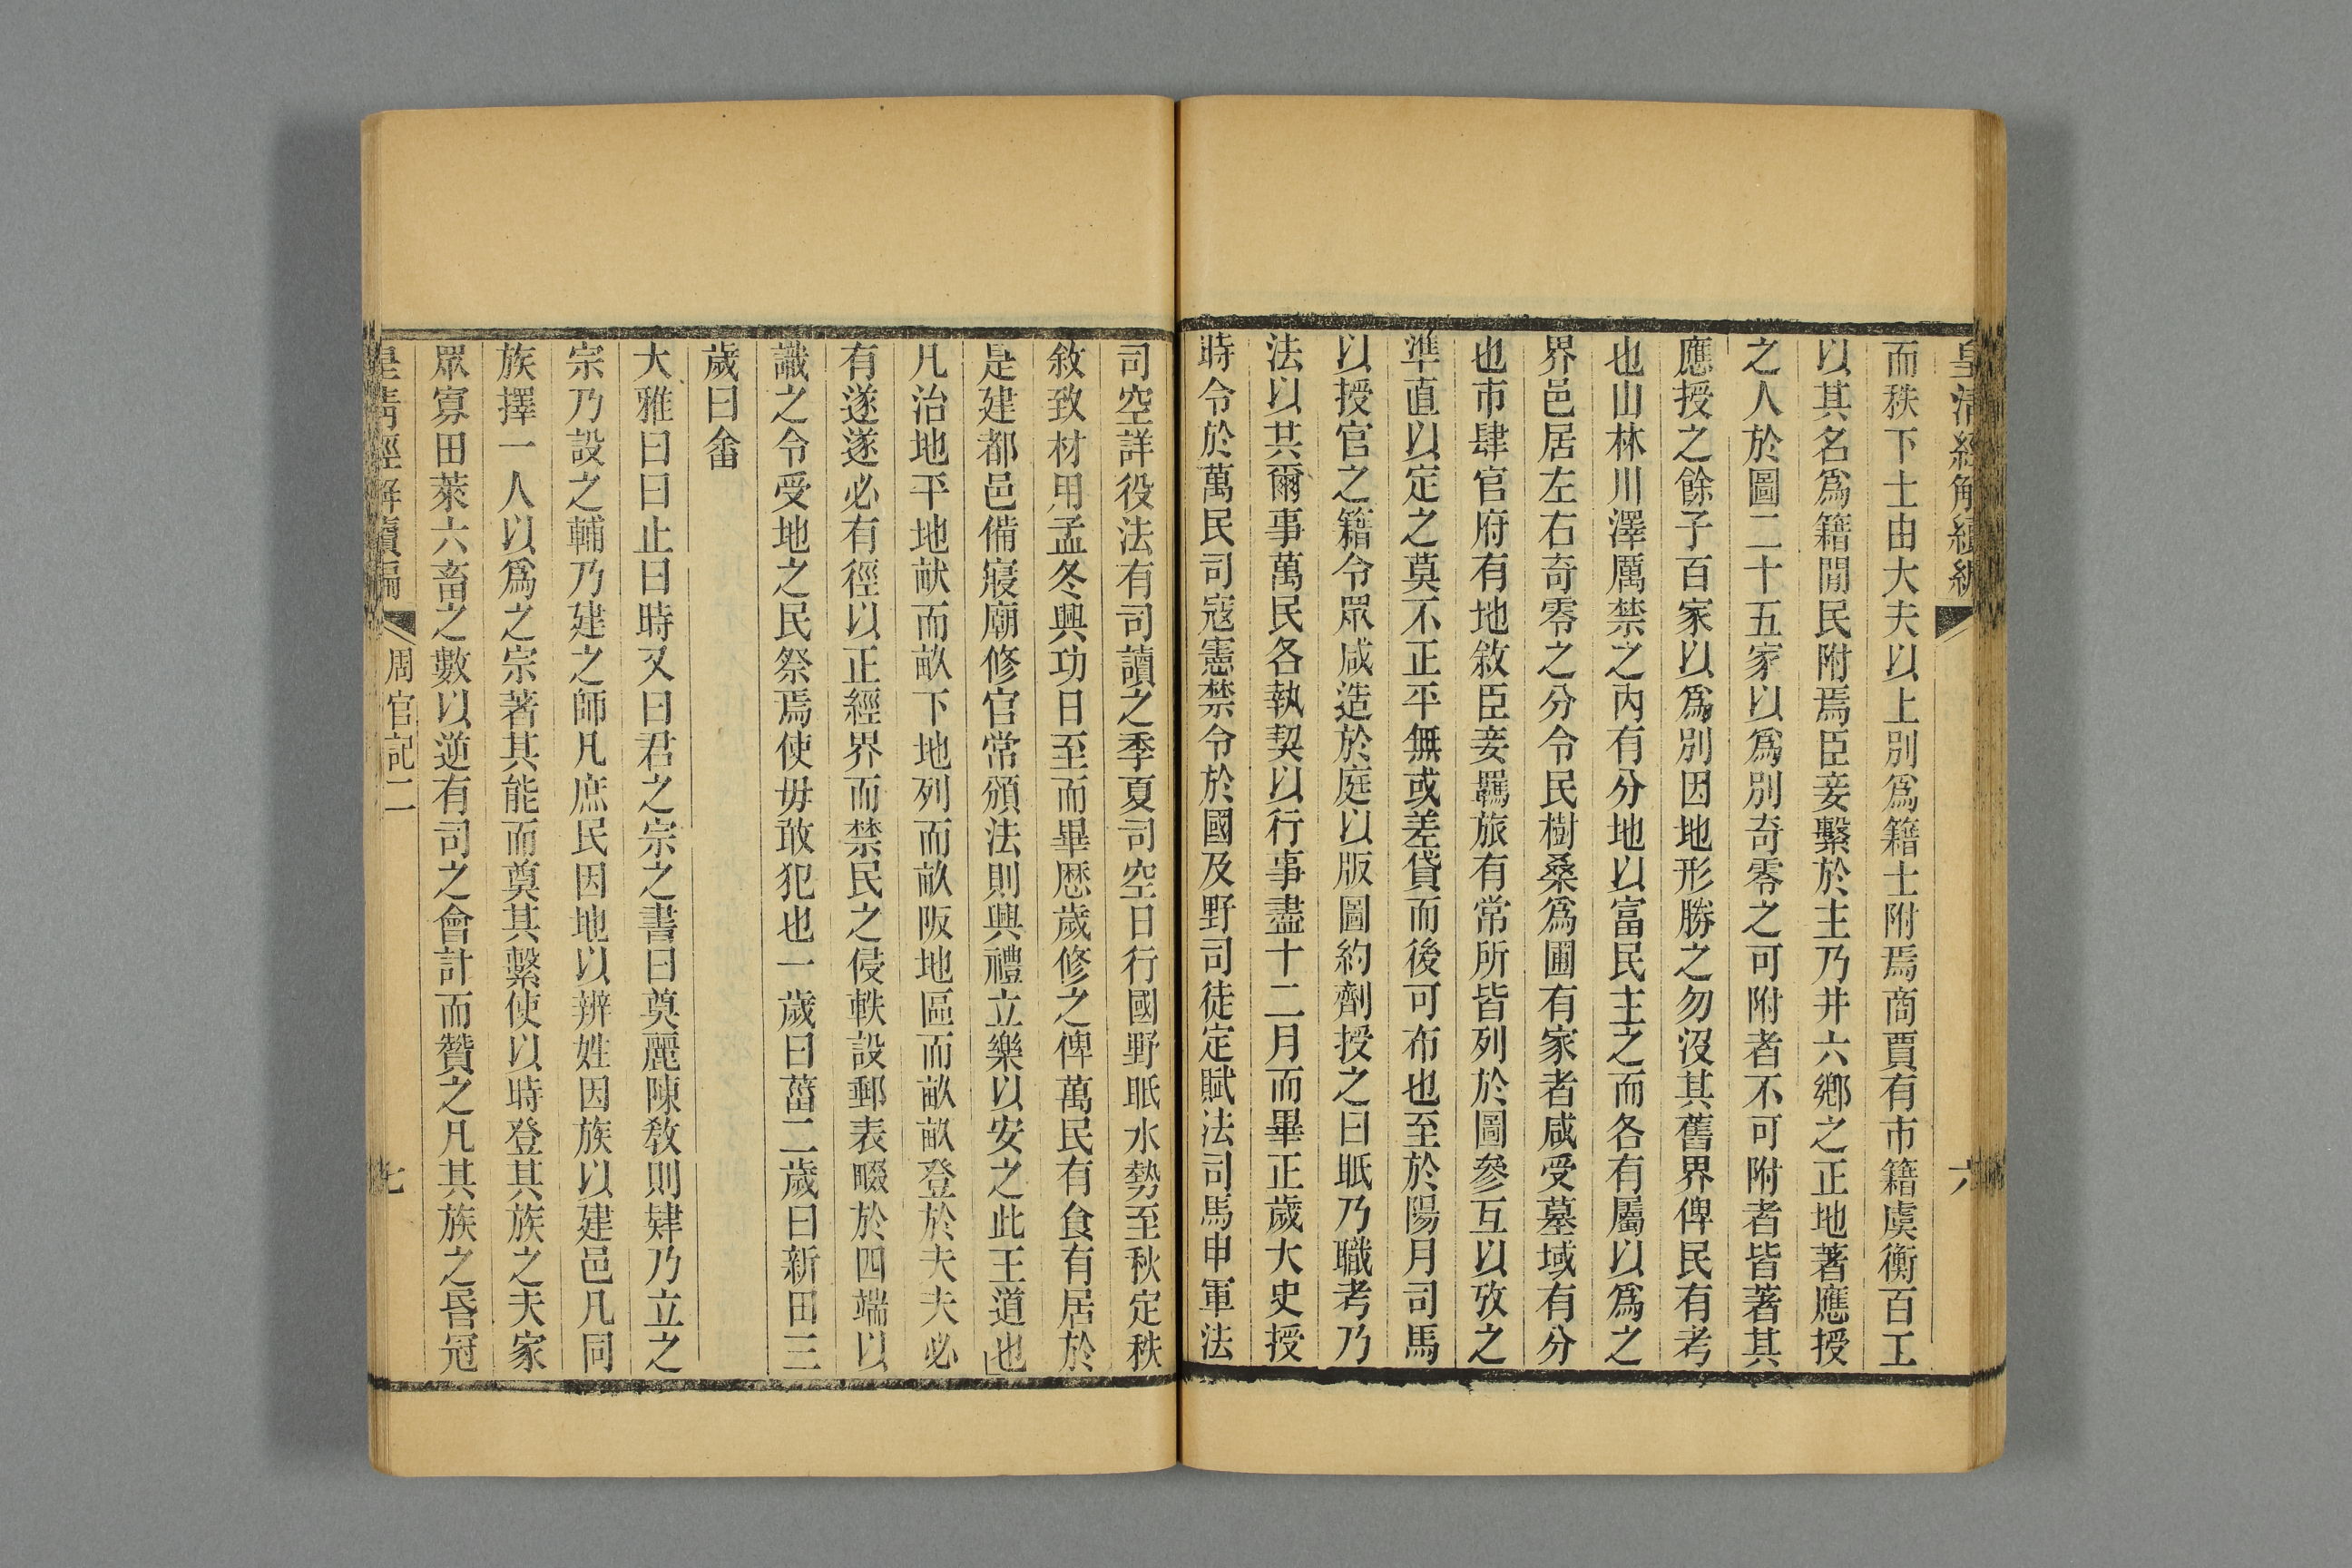 皇清經解續編
六
而秩下士由大夫以上別爲籍士附焉商賈有市籍虞衡百工
以其名爲籍閒民附焉臣妾繫於主乃井六鄉之正地著應授
之人於圖二十五家以爲別奇零之可附者不可附者皆著其
應授之餘子百家以爲別因地形勝之勿沒其舊界俾民有考
也山林川澤厲禁之內有分地以富民主之而各有屬以爲之
界邑居左右奇零之分令民樹桑爲圃有家者咸受墓域有分
也市肆官府有地敘臣妾羈旅有常所皆列於圖參互以攷之
準直以定之莫不正平無或差貸而後可布也至於陽月司馬
以授官之籍令眾咸造於庭以版圖約劑授之曰眂乃職考乃
法以共爾事萬民各執契以行事盡十二月而畢正歲大史授
時令於萬民司寇憲禁令於國及野司徒定賦法司馬申軍法
司空詳役法有司讀之季夏司空日行國野眂水勢至秋定秩
敘致材用孟冬興功日至而畢歷歲修之俾萬民有食有居於
是建都邑備寢廟修官常頒法則興禮立樂以安之此王道也
凡治地平地畎而畝下地列而畝阪地區而畝畝登於夫夫必
有遂遂必有徑以正經界而禁民之侵軼設郵表畷於四端以
識之令受地之民祭焉使毋敢犯也一歲曰菑二歲曰新田三
歲曰畬
大雅曰曰止曰時又曰君之宗之書曰奠麗陳敎則肄乃立之
宗乃設之輔乃建之師凡庶民因地以辨姓因族以建邑凡同
族擇一人以爲之宗著其能而奠其繫使以時登其族之夫家
眾寡田萊六畜之數以逆有司之會計而贊之凡其族之昏冠
皇清經解續編
周官記二
七